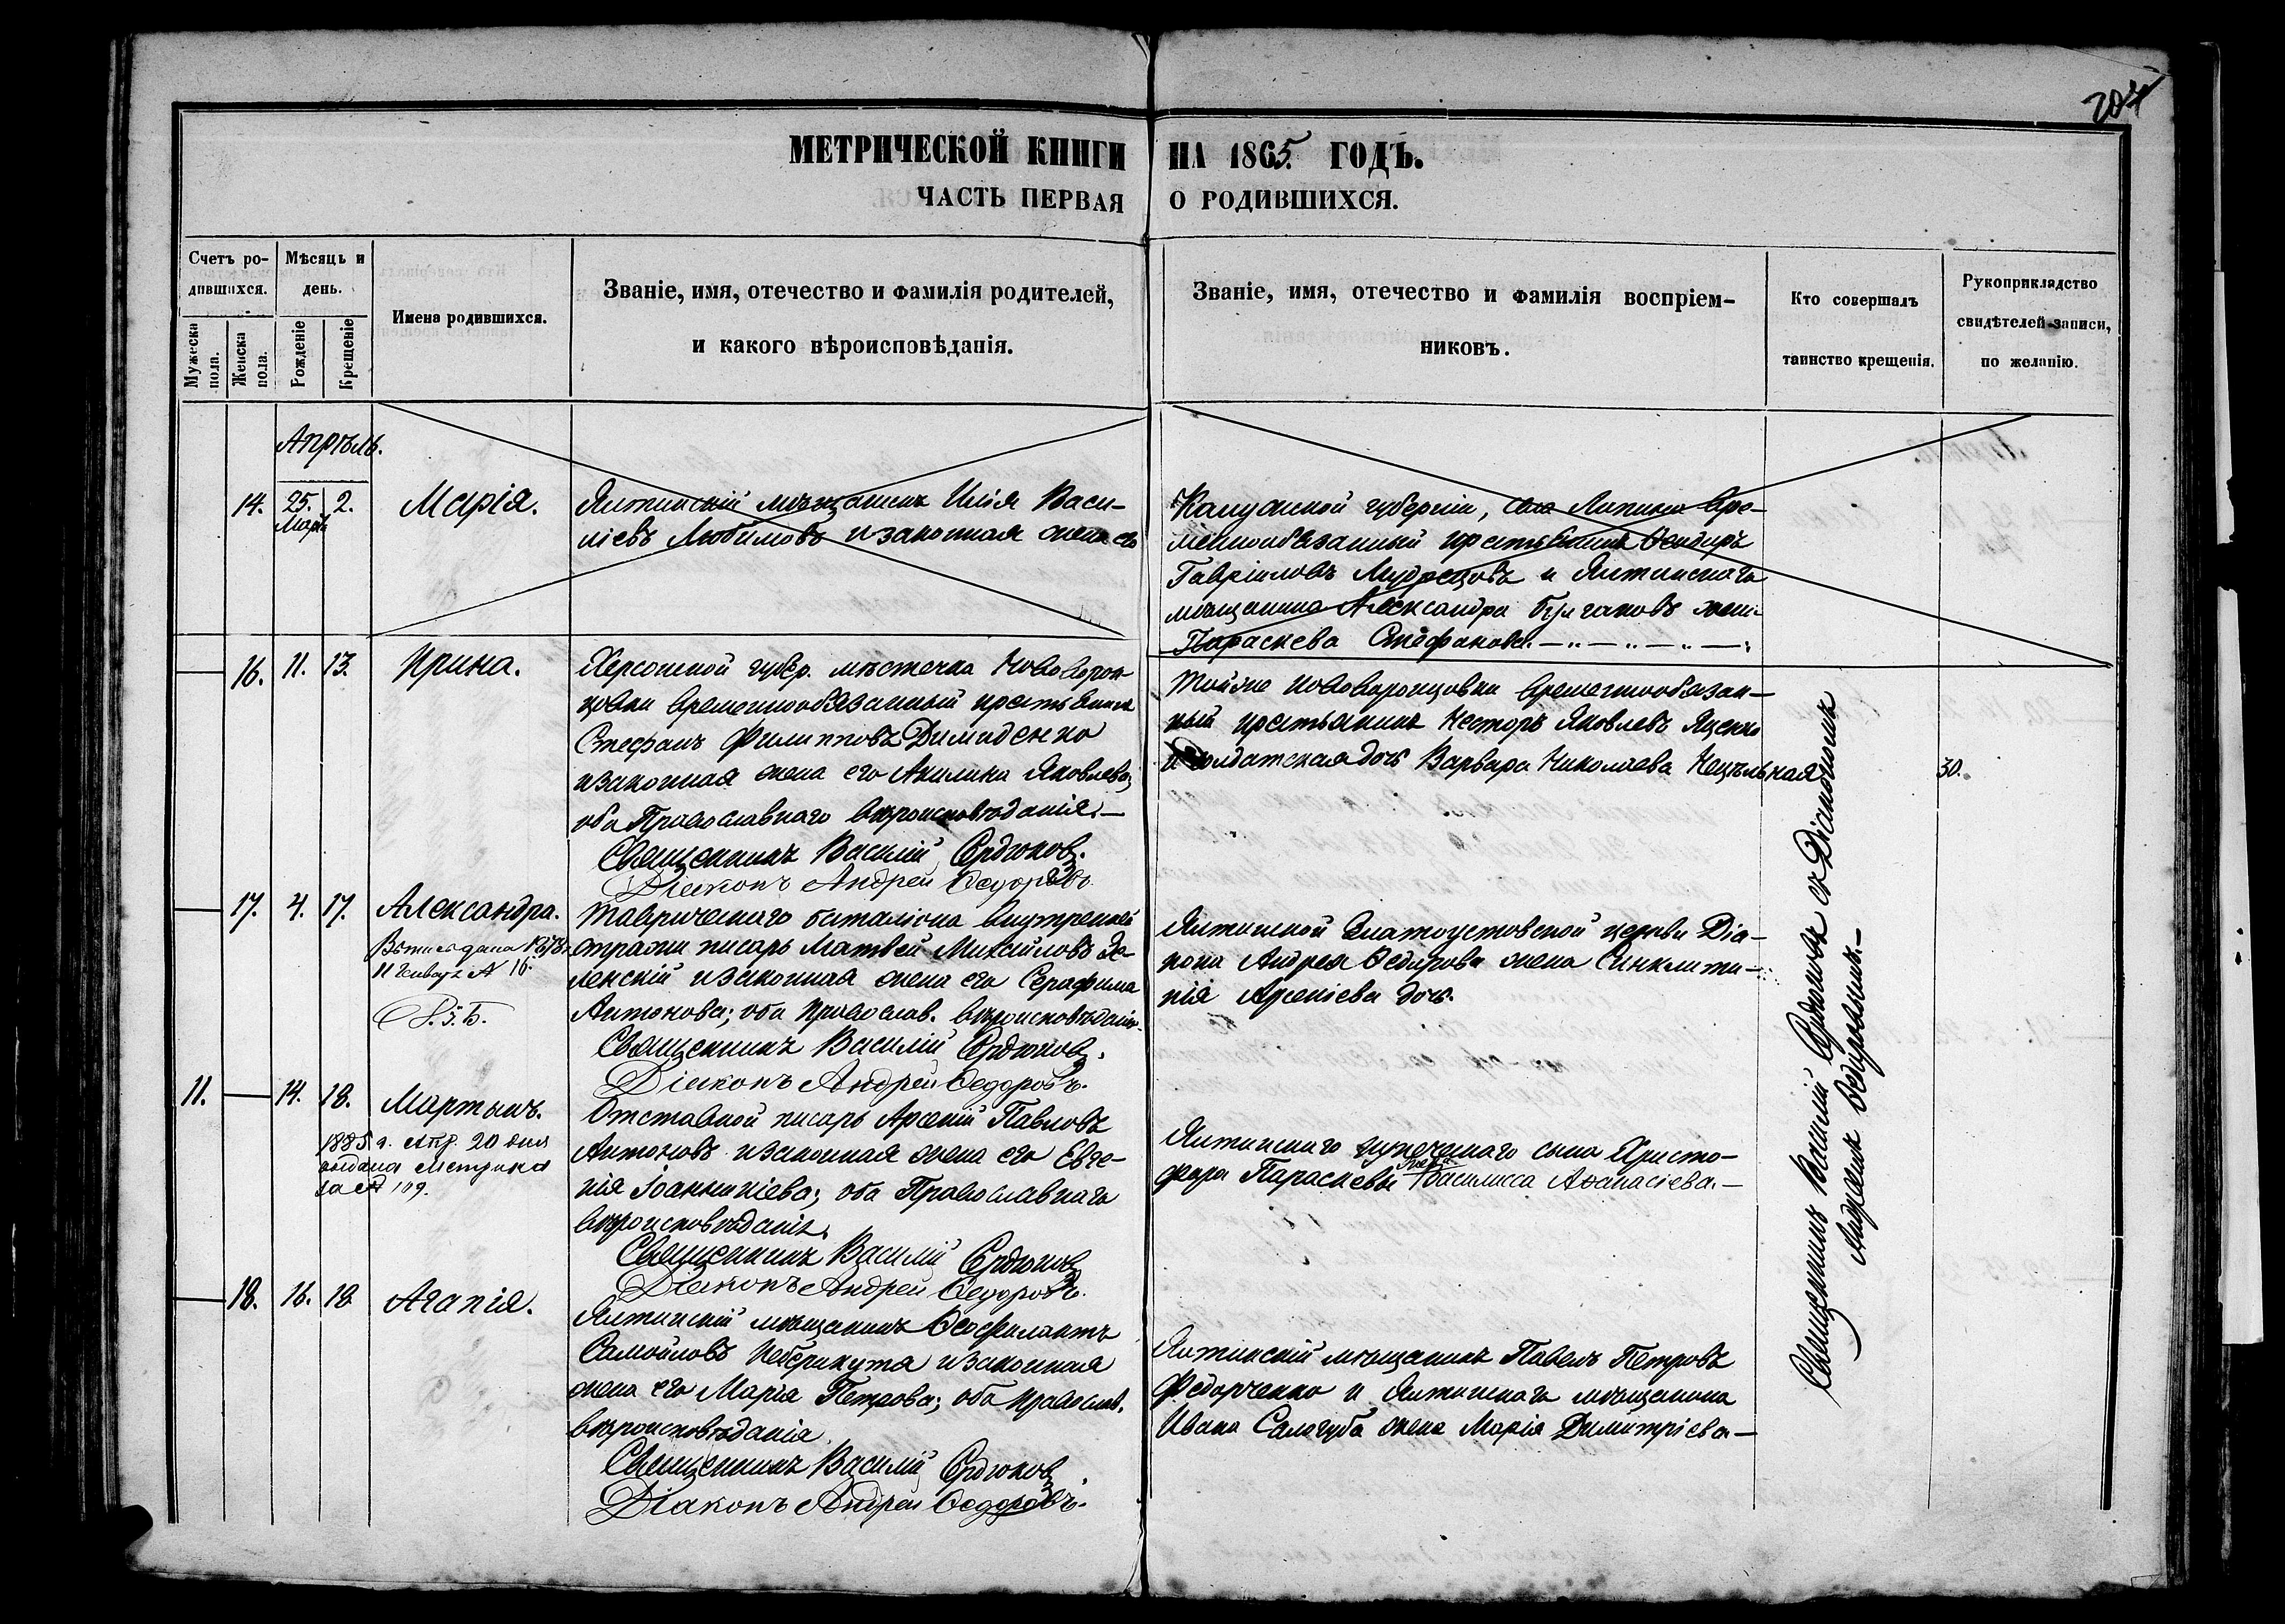 204
МЕТРИЧЕСКОЙ КНИГИ НА 1865 ГОДЪ.
ЧАСТЬ ПЕРВАЯ О РОДИВШИХСЯ.
Счетъ родившихся.
Мужеска пола.
Женска пола.
Мѣсяцъ и день.
Рожденіе
Крещеніе
Имена родившихся.
Званіе, имя, отечество и фамилія родителей,
и какого вѣроисповѣданія.
Званіе, имя, отечество и фамилія воспріем-
никовъ.
Кто совершалъ
таинство крещенія.
Рукоприкладство
свидѣтелей записи,
по желанію.
Апрѣль.
14. 25. Март 2. Марія.
Ялтинскій мѣщанинъ Илія Васи-
ліевъ Любимовъ и законная жена его
Калужской губерніи, села Липина вре-
меннообязанный крестьянинъ Ѳеодоръ
Гавріиловъ Мудрецовъ и Ялтинскаго
мѣщанина Александра жена
Параскева Стефанова.
16. 11. 13. Ирина.
Херсонской губер. мѣстечка Нововорон-
цовки временнообязанный крестьянинъ
Стефанъ Филипповъ Димиденко
и законная жена его Акилина Яковлева;
оба Православнаго вѣроисповѣданія.—
Священникъ Василій Сердюковъ.
Діаконъ Андрей Ѳедоровъ.
Тойже Нововоронцовки временнообязан-
ный крестьянинъ Несторъ Яковлевъ Яценко
и солдатская дочь Варвара Николаева
30.
17. 4. 17. Александра.
11 Января № 16.
Таврическаго баталіона внутренней
стражи писарь Матвей Михайловъ Зе-
ленскій и законная жена его Серафима
Антонова; оба православ. вѣроисповѣданія.
Священникъ Василій Сердюковъ.
Діаконъ Андрей Ѳедоровъ.
Ялтинской Златоустовской церкви Діа-
кона Андрея Ѳедорова жена Синклити-
кія Арсеніева дочь.
11. 14. 18. Мартынъ.
1885 г. Апр. 20 дня
выдана метрика
за № 109.
Отставной писарь Арсеній Павловъ
Антоновъ и законная жена его Евге-
нія Іоанникіева; оба Православнаго
вѣроисповѣданія.
Священникъ Василій Сердюковъ
Діаконъ Андрей Ѳедоровъ.
Ялтинскаго купеческаго сына Христо-
фора Параскевы жена Василисса Аѳанасіева.—
18. 16. 18. Агапія.
Ялтинскій мѣщанинъ Ѳеофилактъ
Самойловъ и законная
жена его Марія Петрова; оба православ.
вѣроисповѣданія.
Священникъ Василій Сердюковъ
Діаконъ Андрей Ѳедоровъ.
Ялтинскій мѣщанинъ Павелъ Петровъ
Федорченко и Ялтинскаго мѣщанина
Ивана Салогуба жена Марія Димитріева—
Священникъ Василій Сердюковъ съ Діакономъ
Андреемъ Ѳедоровымъ.—